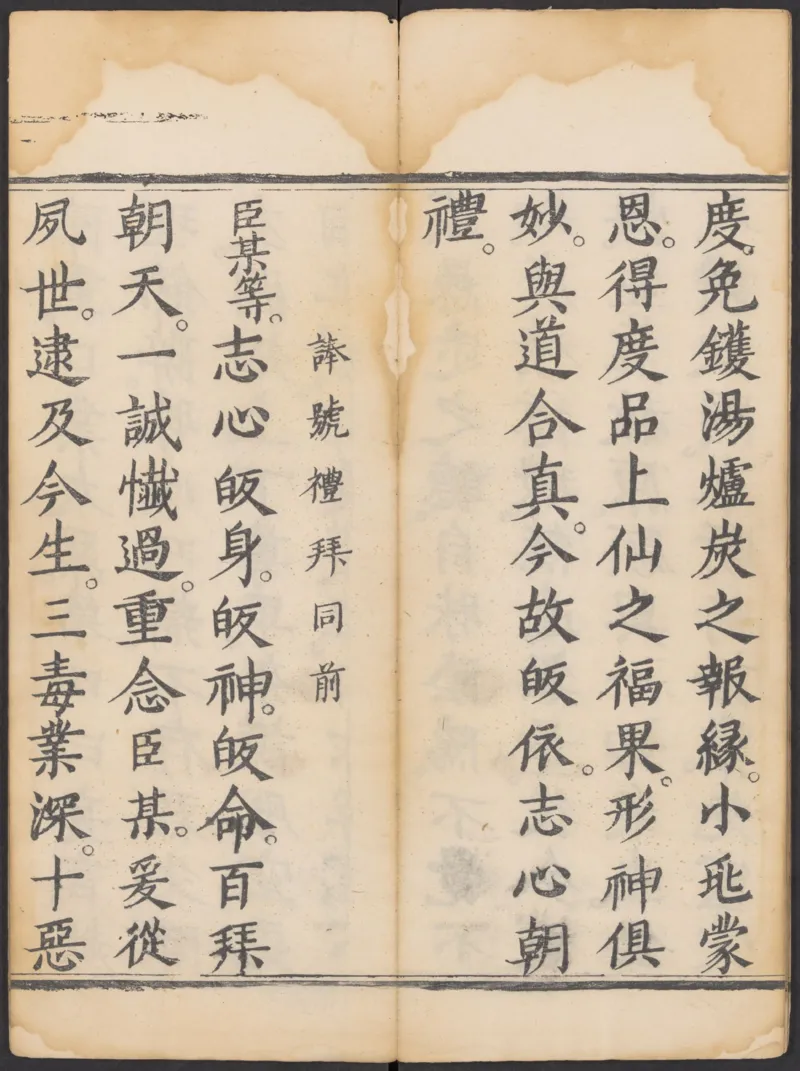 度。免鑊湯爐炭之報縁。小兆蒙
恩。得度品上仙之福果。形神俱
妙。與道合真。今故皈依。志心朝
禮。
諱號禮拜同前
臣某等。志心皈身。皈神。皈命。百拜
朝天。一誠懺過。重念臣某。爰從
夙世。逮及今生。三毒業深。十惡